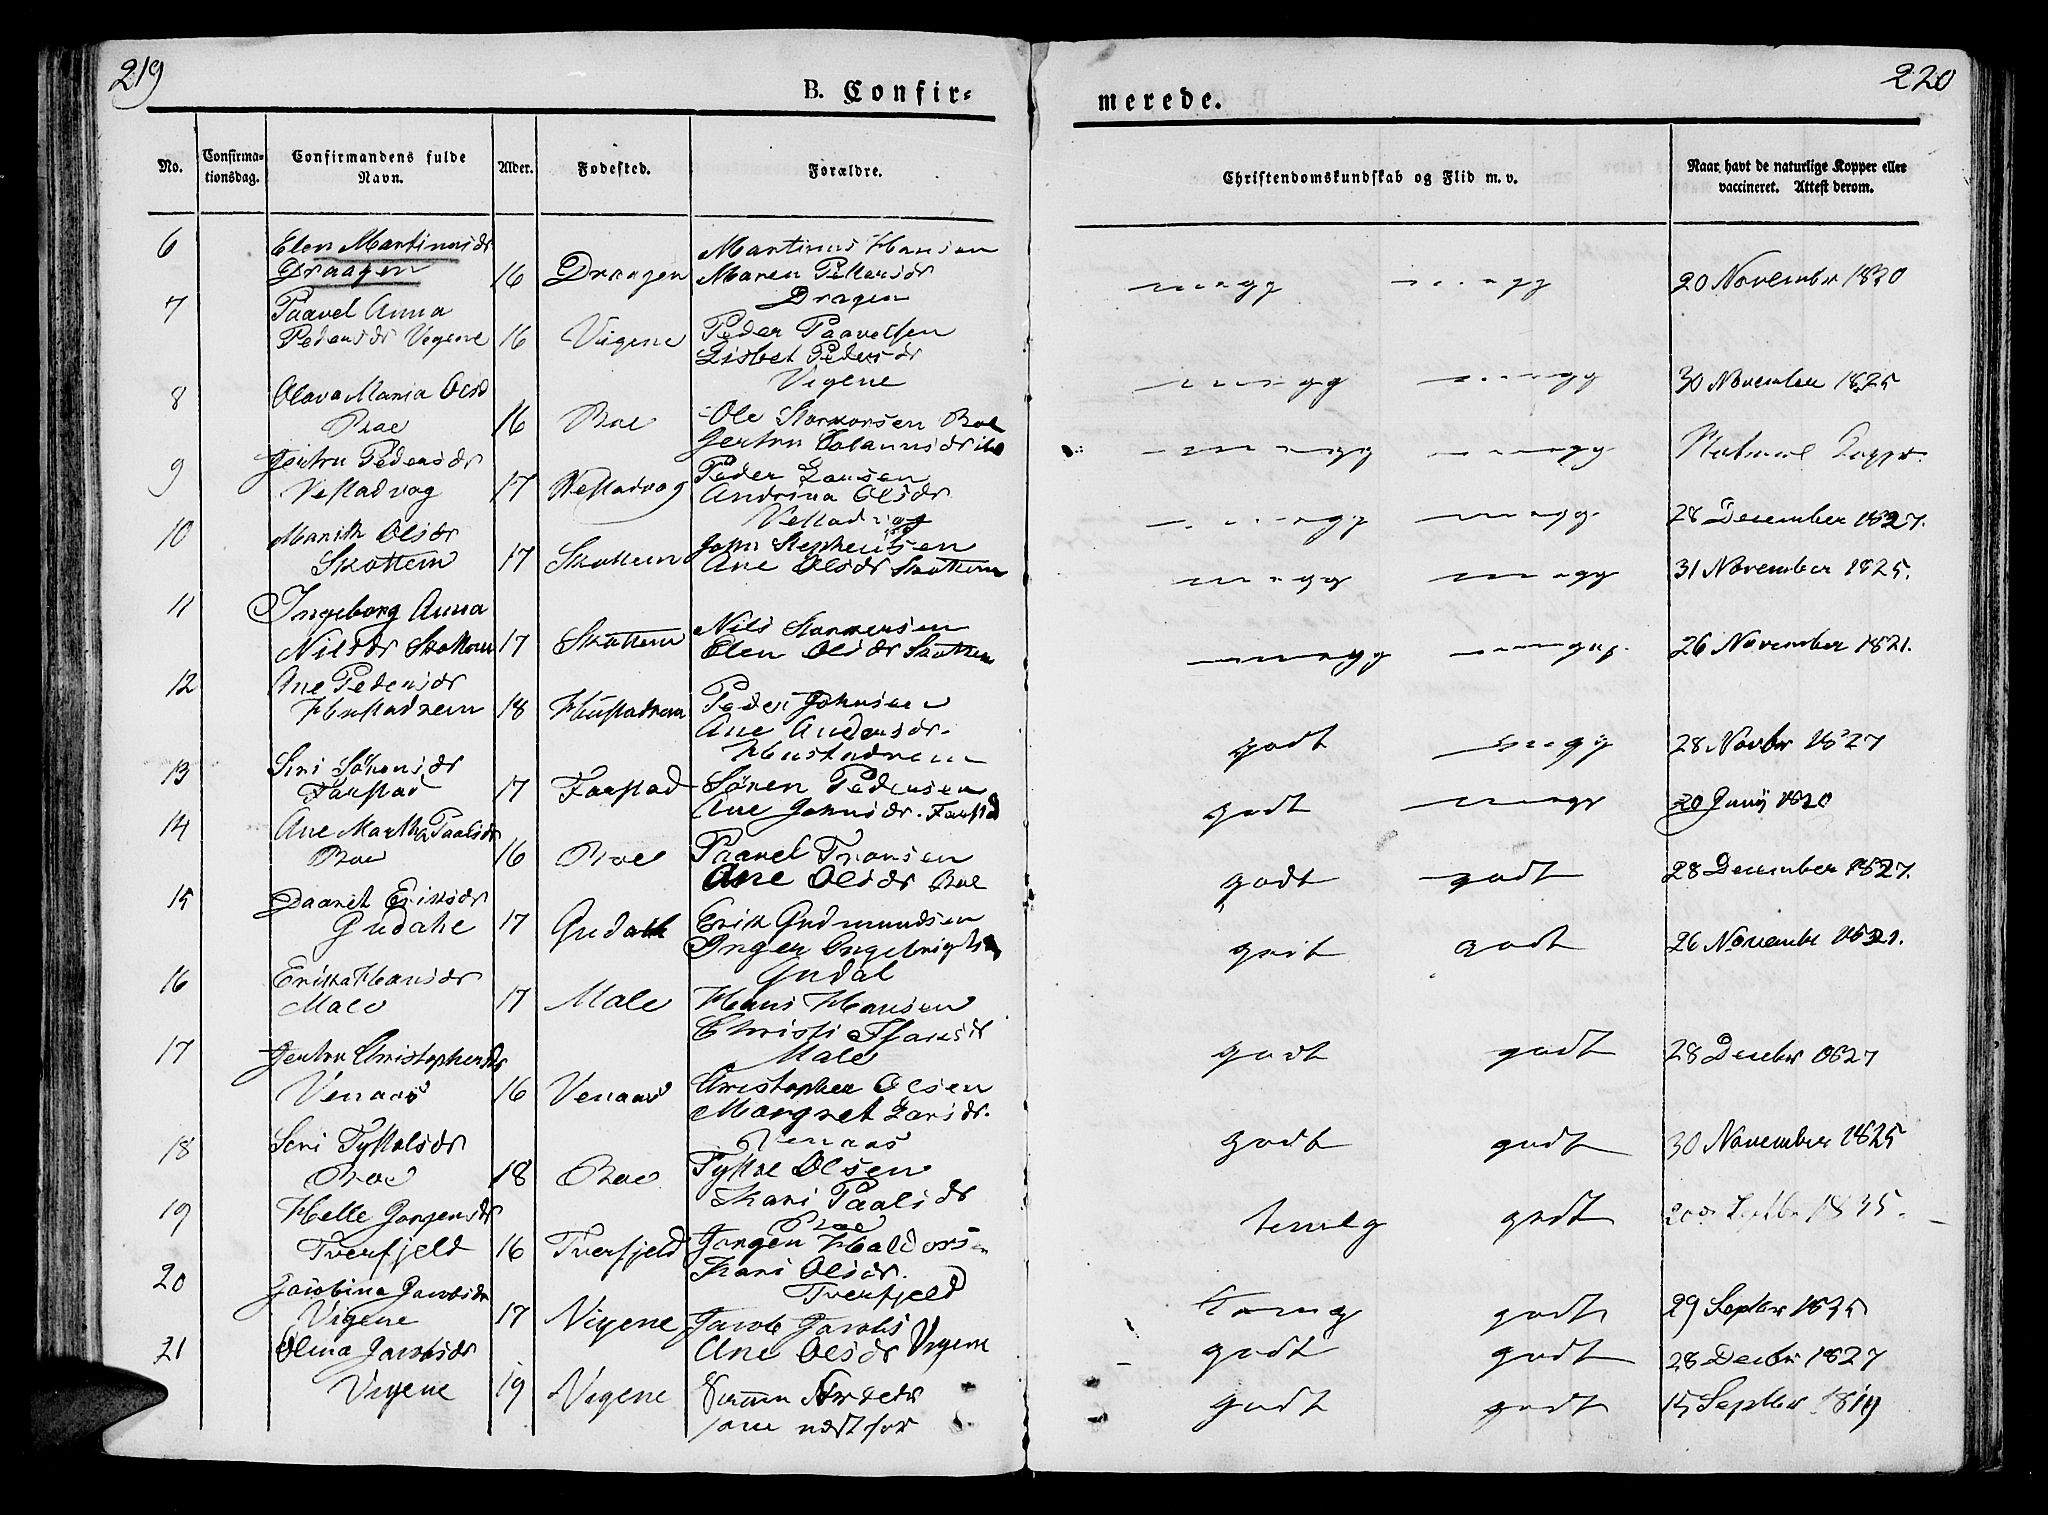 219
220
B. Confir-
merede.
No.
Confirma-
tionsdag.
Confirmandens fulde
Navn.
Alder.
Fødested.
Forældre.
Christendomskundskab og Flid m. v.
Naar havt de naturlige Kopper eller
vaccineret. Attest derom.
6
Elen Martinusdr
Draagen
16
Draagen
Martinus Hansen
Maren Pettersdr
Dragen
megg
megg
20 November 1820
7
Paavel Anna
Pedersdr Vigene
16
Vigene
Peder Paavelsen
Lisbet Pedersdr
Vigene
megg
megg
30 November 1825
8
Olava Maria Olsd
Boe
16
Boe
Ole Storkorsen Boe
Gertru
megg
megg
Naturl Kopper
9
Gertru Pedersdr
Vestadvog
17
Vestadvog
Peder Larsen
Andrina Olsdr
Vestadvog
megg
megg
28 December 1827.
10
Marith Olsdr
Skottem
17
Skottem
John Stephensen
Ane Olsdr Skottem
megg
megg
31 November 1825.
11
Ingeborg Anna
Nilsdr Skottem
17
Skottem
Nils Storkersen
Elen Olsdr Skottem
megg
megg.
26 November 1821.
12
Ane Pedersdr
Hustadnem
18
Hustadnem
Peder Johnsen
Ane Andersdr.
Hustadnem
godt
megg
28 Novbr 1827
13
Siri Sörensdr
Farstad
17
Farstad
Sören Pedersen
Ane Johnsdr. Farstd
godt
megg
20 Junij 1820
14
Ane Martha Paalsdr
Boe
16
Boe
Paavel Fransen
Ane Olsdr Boe
godt
godt
28 December 1827.
15
Daaret Eriksdr
Gudahe
17
Gudahl
Erik Gudmundsen
Inger Ingebrigtsd
Gudal
godt
godt
26 Novembr 1821.
16
Erikka Hansdr
Male
17
Male
Hans Hansen
Christi Isaksdr
Male
godt
godt
28 Decbr 1827
17
Gertru Christophersdr
Venaas
16
Venaas
Christopher Olsen
Margret Larsdr.
Venaas
godt
godt
30 November 1825
18
Seri Tystelsdr
Boe
18
Boe
Tystel Olsen
Kari Paalsdr
Boe
temelg
godt
1835.
19
Helle Jorgensdr
Tverfjeld
16
Tverfjeld
Jorgen Haldorsn
Kari Olsdr.
Tverfjeld
godt
29 Septbr 1835
20
Jacobina Jacobsdr
Vigene
17
Vigene
Jacob Jacobs
Ane Olsdr Vigene
godt
godt
28 Decbr 1827
21
Olina Jacobsdr
Vigene
19
Vigene
som næst for
godt
godt
15 Septbr 1819